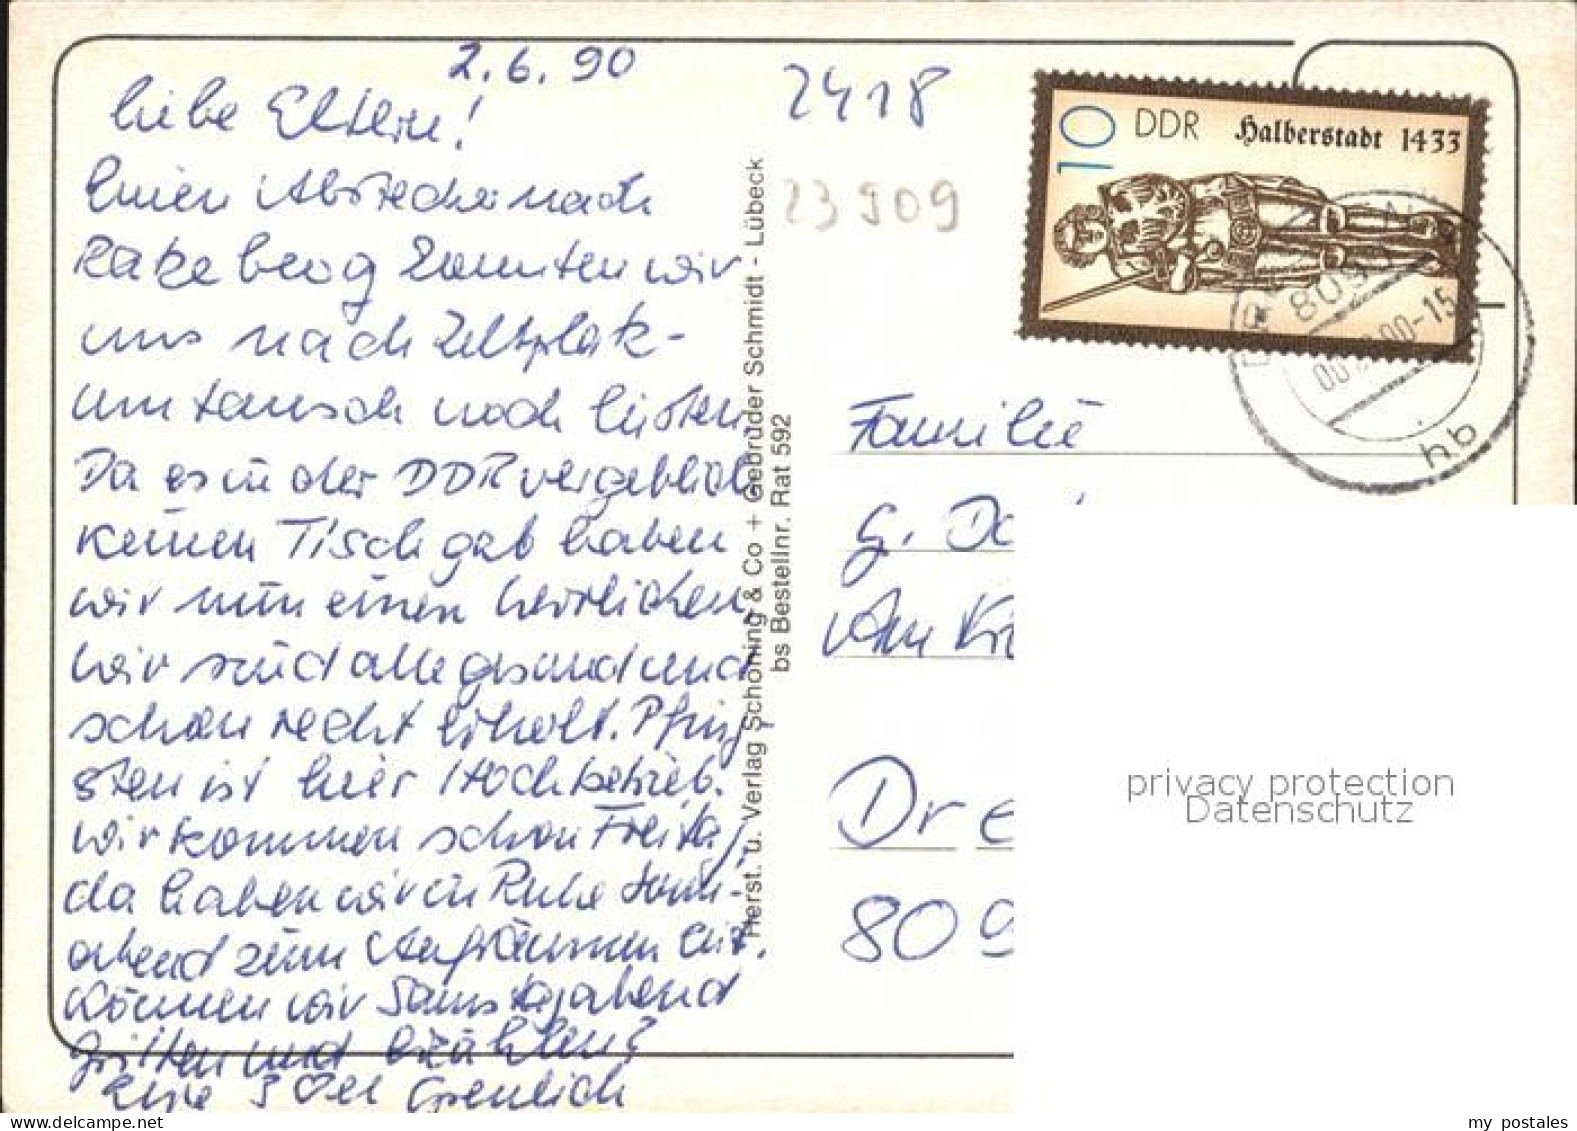 2.6.90
liebe Eltern!
Einen Abstecher nach
Ratzeburg konnten wir
uns nach Zeltplatz-
umtausch noch leisten
Da es in der DDR vergeblich
keinen Tisch gab haben
wir nun einen herrlichen
wir sind alle gesund und
schon recht erholt. Pfing-
sten ist hier Hochbetrieb.
wir kommen schon Freitag,
da haben wir in Ruhe Sonn-
abend zum Aufräumen Zeit.
Können wir Samstagabend
grillen und erzählen?
Eure 3 Oer
2418
23909
Herst. u. Verlag Schöning & Co + Gebrüder Schmidt - Lübeck
bs Bestellnr. Rat 592
10 DDR Halberstadt 1433
809
90-15
hb
Familie
G. Do
Am Kr
Dre
809
privacy protection
Datenschutz
my postales